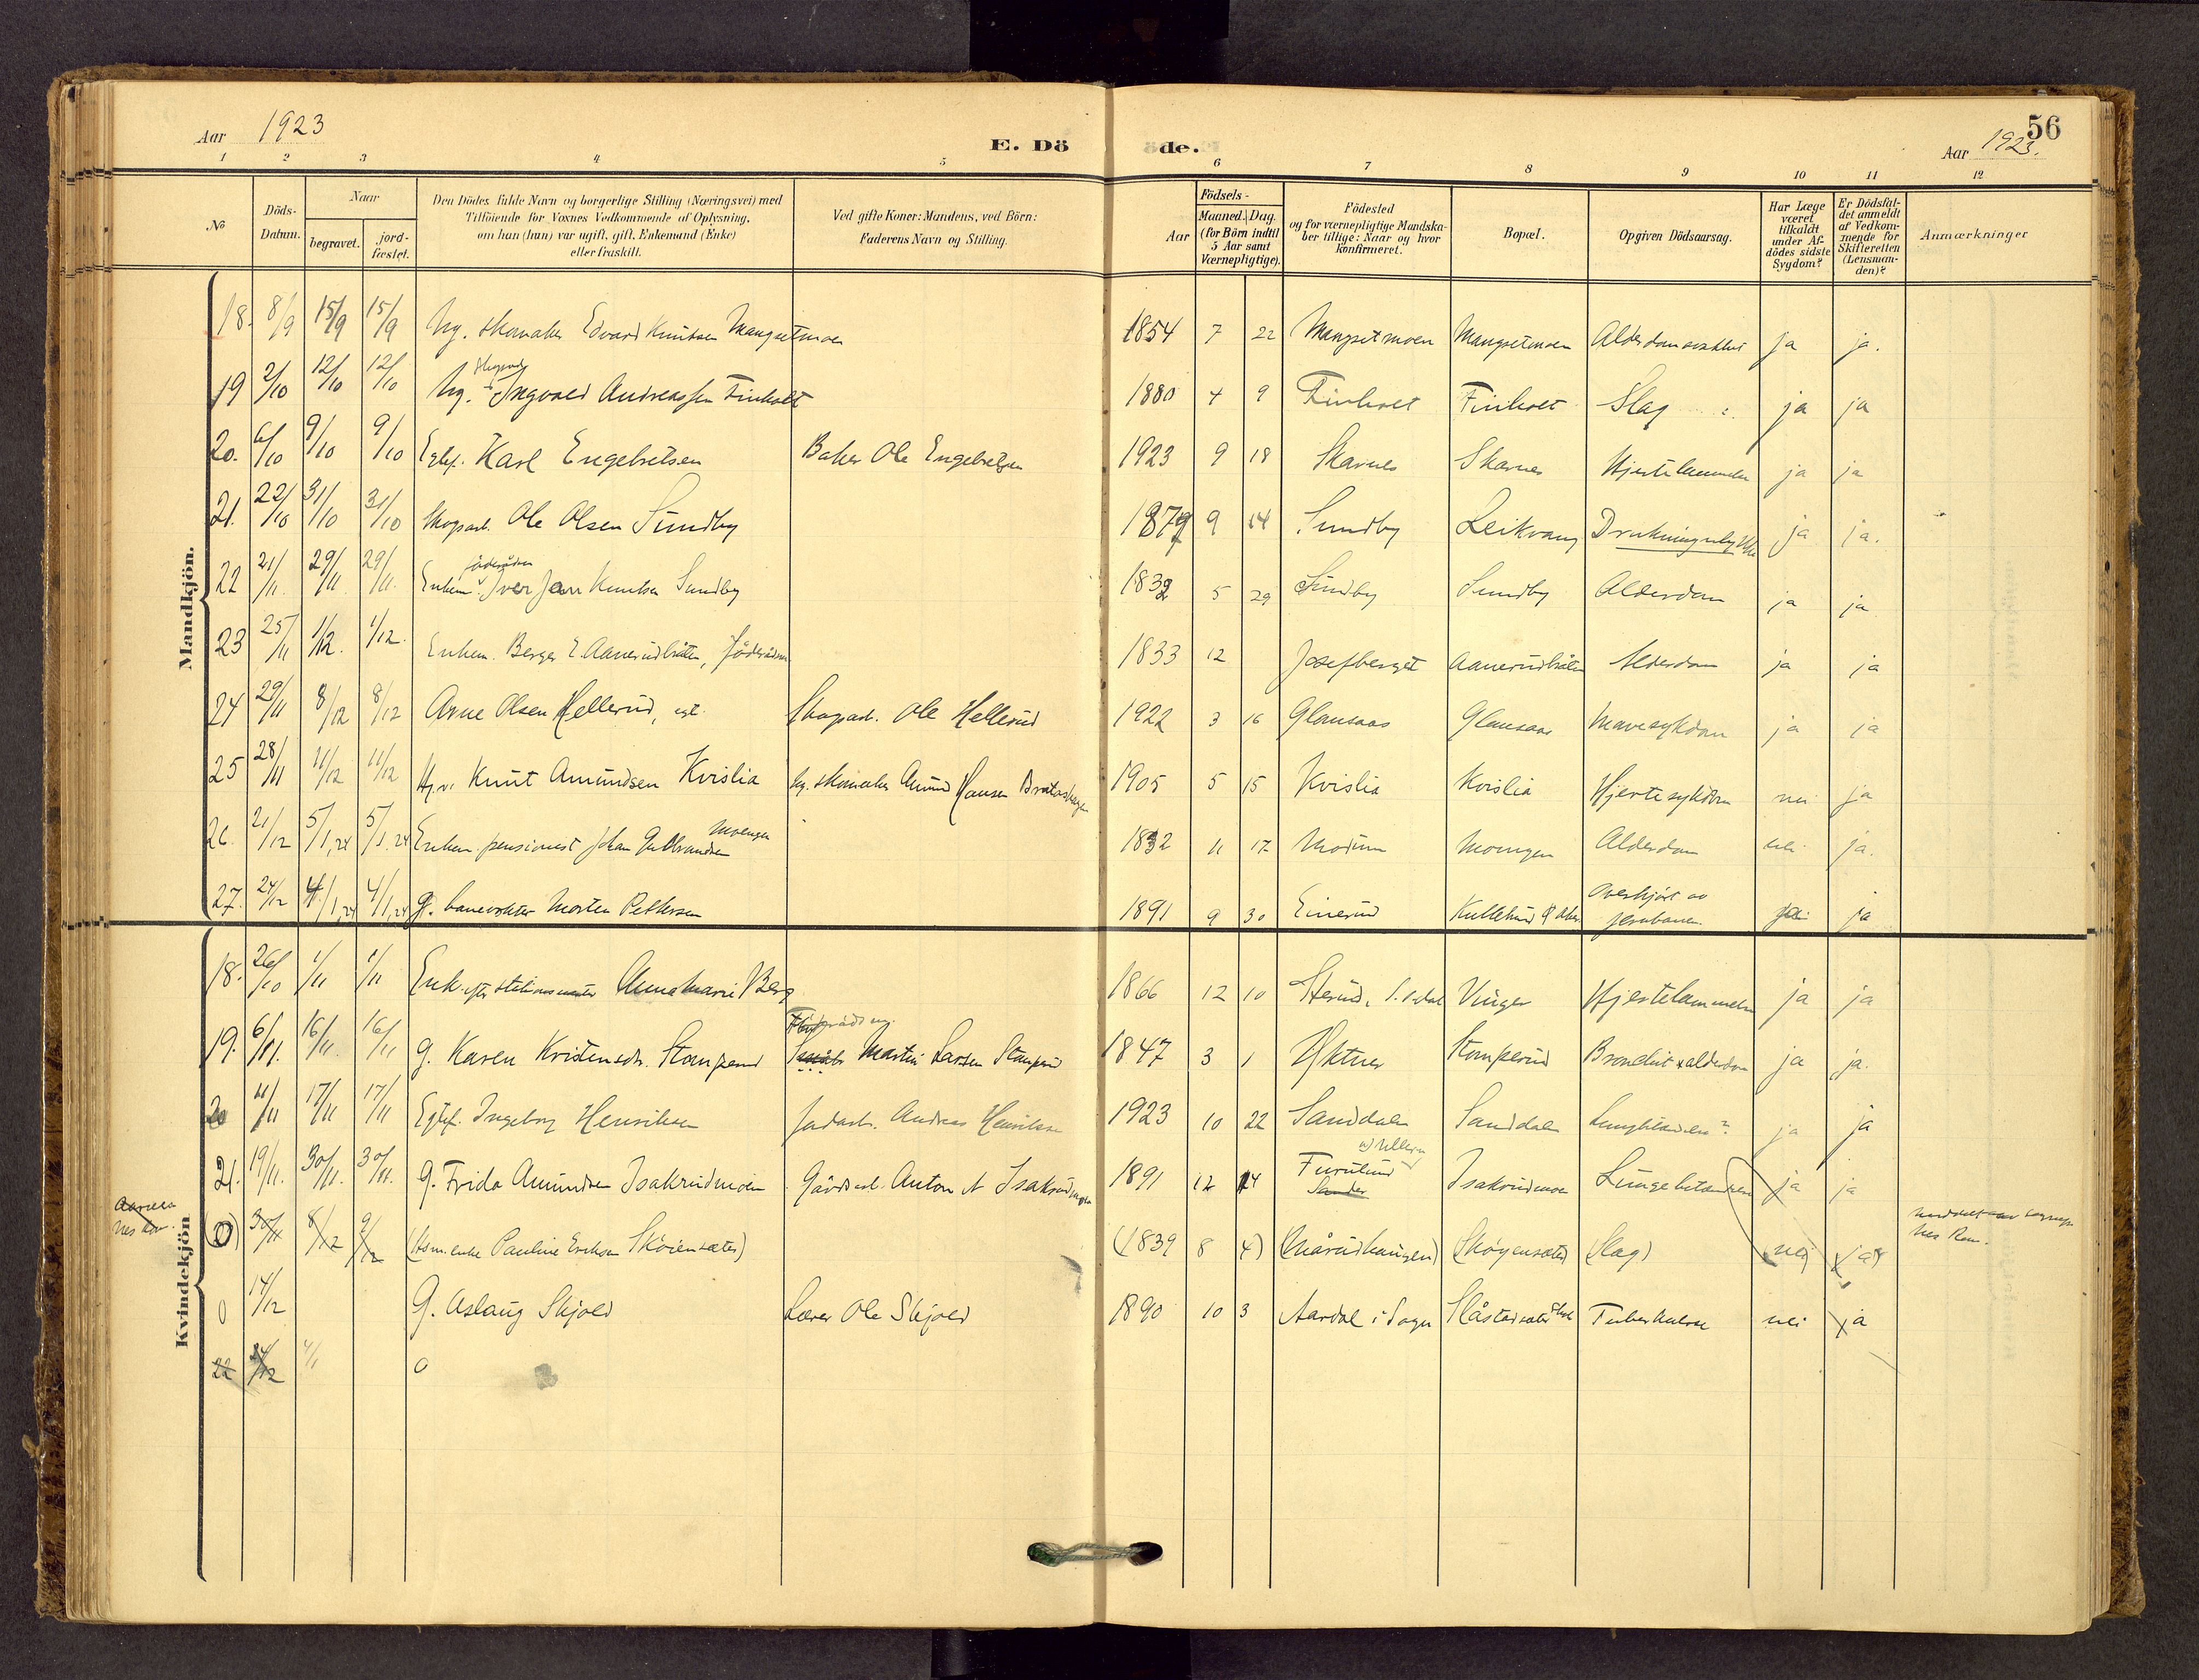 Aar 1923
E. Dö
1 2 3 4 5
No
Döds-
Datum.
Naar
begravet.
jord-
fæstet.
Den Dödes fulde Navn og borgerlige Stilling (Næringsvei) med
Tilföiende for Voxnes Vedkommende af Oplysning,
om han (hun) var ugift, gift, Enkemand (Enke)
eller fraskilt.
Ved gifte Koner: Mandens, ved Börn:
Faderens Navn og Stilling.
Mandkjön.
18. 8/9 15/9 15/9 Ug. skomaker Edvard Knutsen Mangsetmoen
19 2/10 12/10 12/10 Ug. Ingvald Andreassen Finholt
20. 6/10 9/10 9/10 Egtef. Karl Engebretsen Baker Ole Engebretsen
21. 22/10 31/10 31/10 Skogsarb. Ole Olsen Sundby
föderådsm
22 21/11. 29/11. 29/11. Enkem. Iver Jan Knutsen Sundby
23 25/11 1/12. 1/12. Enkem. Berger E. Aanerudbråten, föderådsm
24 29/11 8/12 8/12 Arne Olsen Hellerud, egt. Skogsarb. Ole Hellerud
25 28/11 11/12 11/12 Knut Amundsen Kvislia ug. skomaker Amund Hansen
26. 21/12 5/1,24 5/1.24 Enkem. pensionist Johan Gulbrandsen Moengen
27. 24/12 4/1,24 4/1,24 g. banevokter Morten Pettersen
Kvindekjön
18. 26/10 1/11 1/11 Enk. efter stationsmester Anna Marie Berg
19. 6/11. 16/11. 16/11 g. Karen Kristensdtr. Stomperud Martin Larsen Stomperud
20 11/11 17/11 17/11 Egtef. Ingeborg Henriksen Jordarb. Andreas Henriksen
21. 19/11. 30/11. 30/11. g. Frida Amundsen Isakrudmoen Gårdarb. Anton A Isakrudmoen
Nes Rom.
(0) 30/11 8/12 9/12 (Hsm. enke Pauline Eriksen Sköiensæter)
0 14/12 G. Aslaug Skjold Lærer Ole Skjold
22 24/12 4/1 0
öde.
56
Aar 1923.
6 7 8 9 10 11 12
Aar
Födsels-
Maaned. Dag.
(for Börn indtil
5 Aar samt
Værnepligtige).
Födested
og for værnepligtige Mandska-
ber tillige: Naar og hvor
konfirmeret.
Bopæl.
Opgiven Dödsaarsag.
Har Læge
været
tilkaldt
under Af-
dödes sidste
Sygdom?
Er Dödsfal-
det anmeldt
af Vedkom-
mende for
Skifteretten
(Lensman-
den)?
Anmærkninger
1854 7 22 Mangsetmoen Mangsetmoen Alderdomssvakhet ja ja.
1880 4 9 Finholt Finholt Slag ja ja
1923 9 18 Skarnes Skarnes Hjertelammelse ja ja
1879 9 14 Sundby Leikvang Drukningsulykke ja ja.
1832 5 29 Sundby Sundby Alderdom ja ja
1833 12 Josefberget Aanerudbråten Alderdom ja ja
1922 3 16 Glansaas Glansaas Mavesykdom ja ja
1905 5 15 Kvislia Kvislia Hjertesykdom nei ja
1832 11 17 Modum Moengen Alderdom nei ja.
1891 9 30 Einerud Kullehus Overkjört av jernbanen ja
1866 12 10 Vinger Hjertelammelse ja ja
1847 3 1 Stomperud Bronchit & alderdom ja ja.
1923 10 22 Sanddalen Sanddalen Lungebetændelse? ja ja
1891 12 14 Furulund Sander Isakrudmoen Lungebetændelse ja ja
(1839 8 4) (Mårudhaugen) (Skøyensæter) (Slag) nei ja)
Nes Rom.
1890 10 3 Aardal i Sogn Slåstadsæter Tuberkulose nei ja